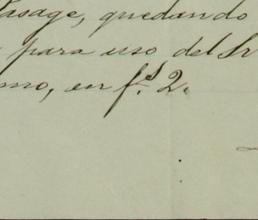 Pasage, quedando
para uso del Sr
mo, en f.s 2.